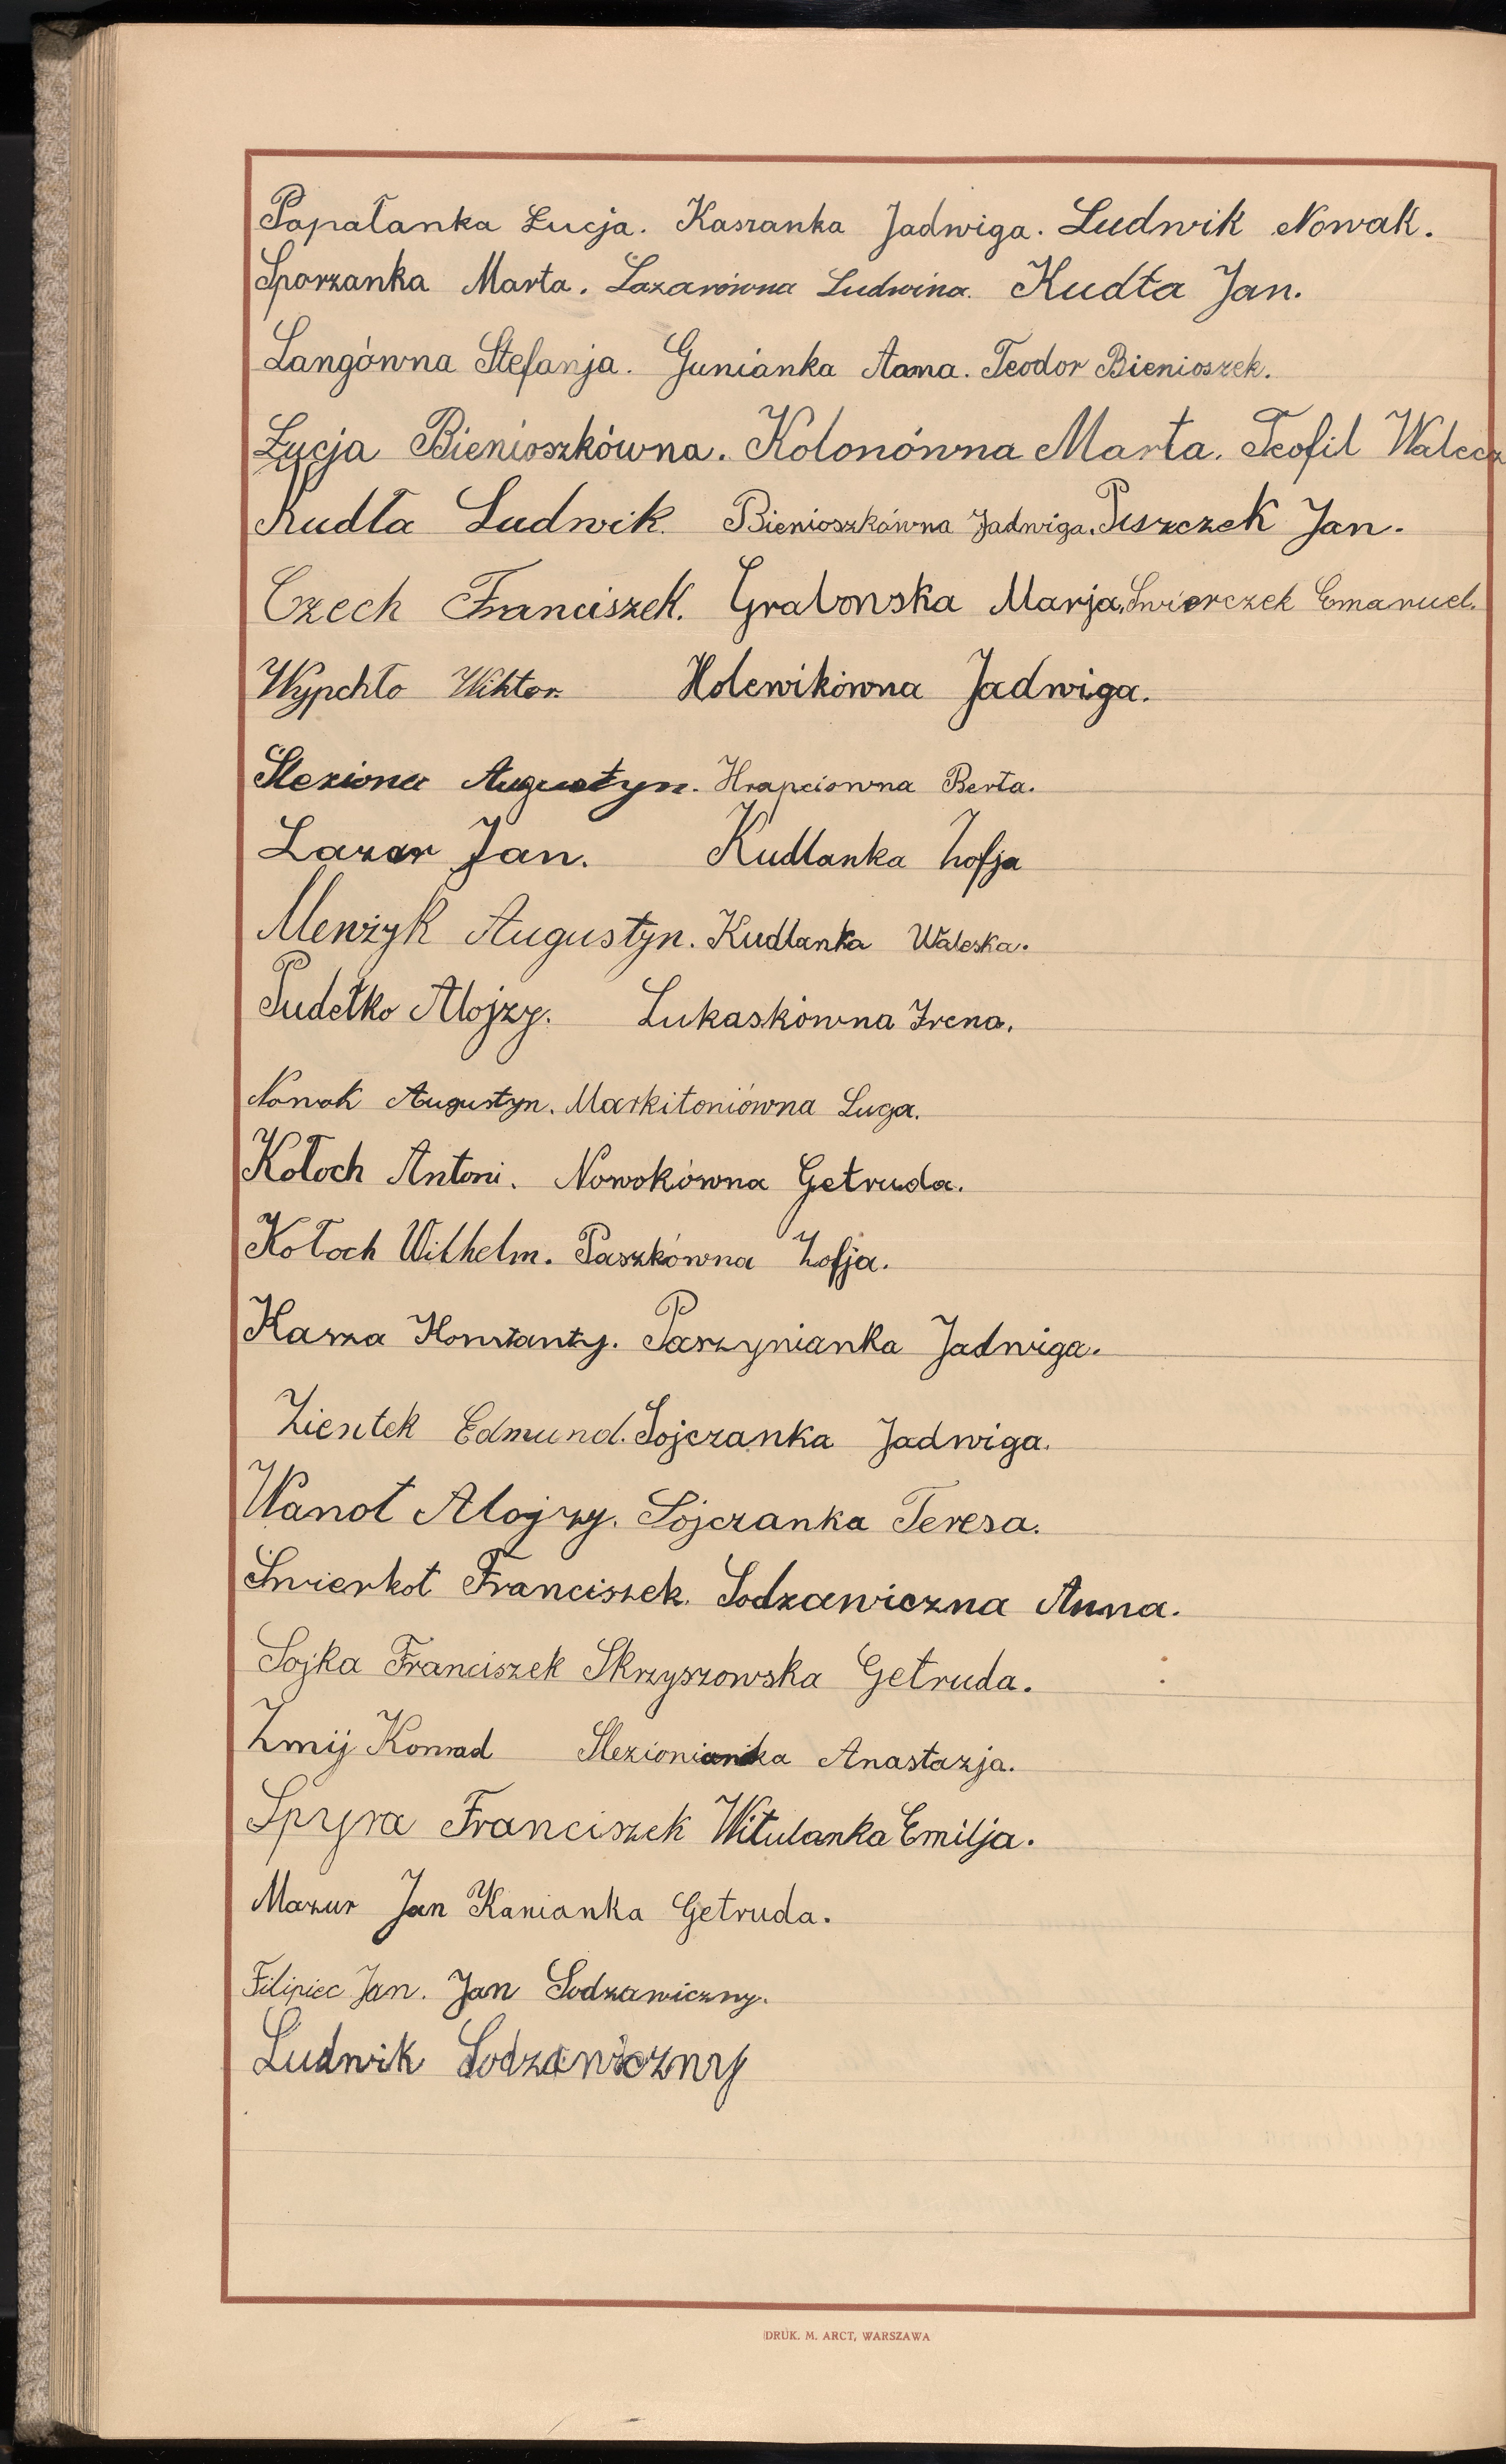 Papałanka Łucja. Kaszanka Jadwiga. Ludwik Nowak.
Sporzanka Marta. Lazarówna Ludwina. Kudła Jan.
Langówna Stefanja. Gunianka Anna. Teodor Bienioszek.
Łucja Bienioszkówna. Kolonówna Marta. Teofil Walecz
Kudła Ludwik. Bienioszkówna Jadwiga. Piszczek Jan.
Czech Franciszek. Grabonska Marja. Świerczek Emanuel.
Wypchło Wiktor. Holewikówna Jadwiga.
Śleziona Augustyn. Hrapciowna Berta.
Lazar Jan. Kudlanka Zofja
Menżyk Augustyn. Kudlanka Waleska.
Pudełko Alojzy. Lukaskówna Irena.
Nowak Augustyn. Markitoniówna Lucja.
Kołoch Antoni. Nowokówna Getruda.
Kołoch Wilhelm. Paszkówna Zofja.
Kasza Konstanty. Parzynianka Jadwiga.
Zientek Edmund. Sojczanka Jadwiga.
Wanot Alojzy. Sojczanka Teresa.
Śmierkot Franciszek. Sodzawiczna Anna.
Sojka Franciszek Skrzyszowska Getruda.
Żmij Konrad Slezionianka Anastazja.
Spyra Franciszek Witulanka Emilja.
Mazur Jan Kanianka Getruda.
Filipiec Jan. Jan Sodzawiczny.
Ludwik Sodzawiczny
DRUK. M. ARCT, WARSZAWA